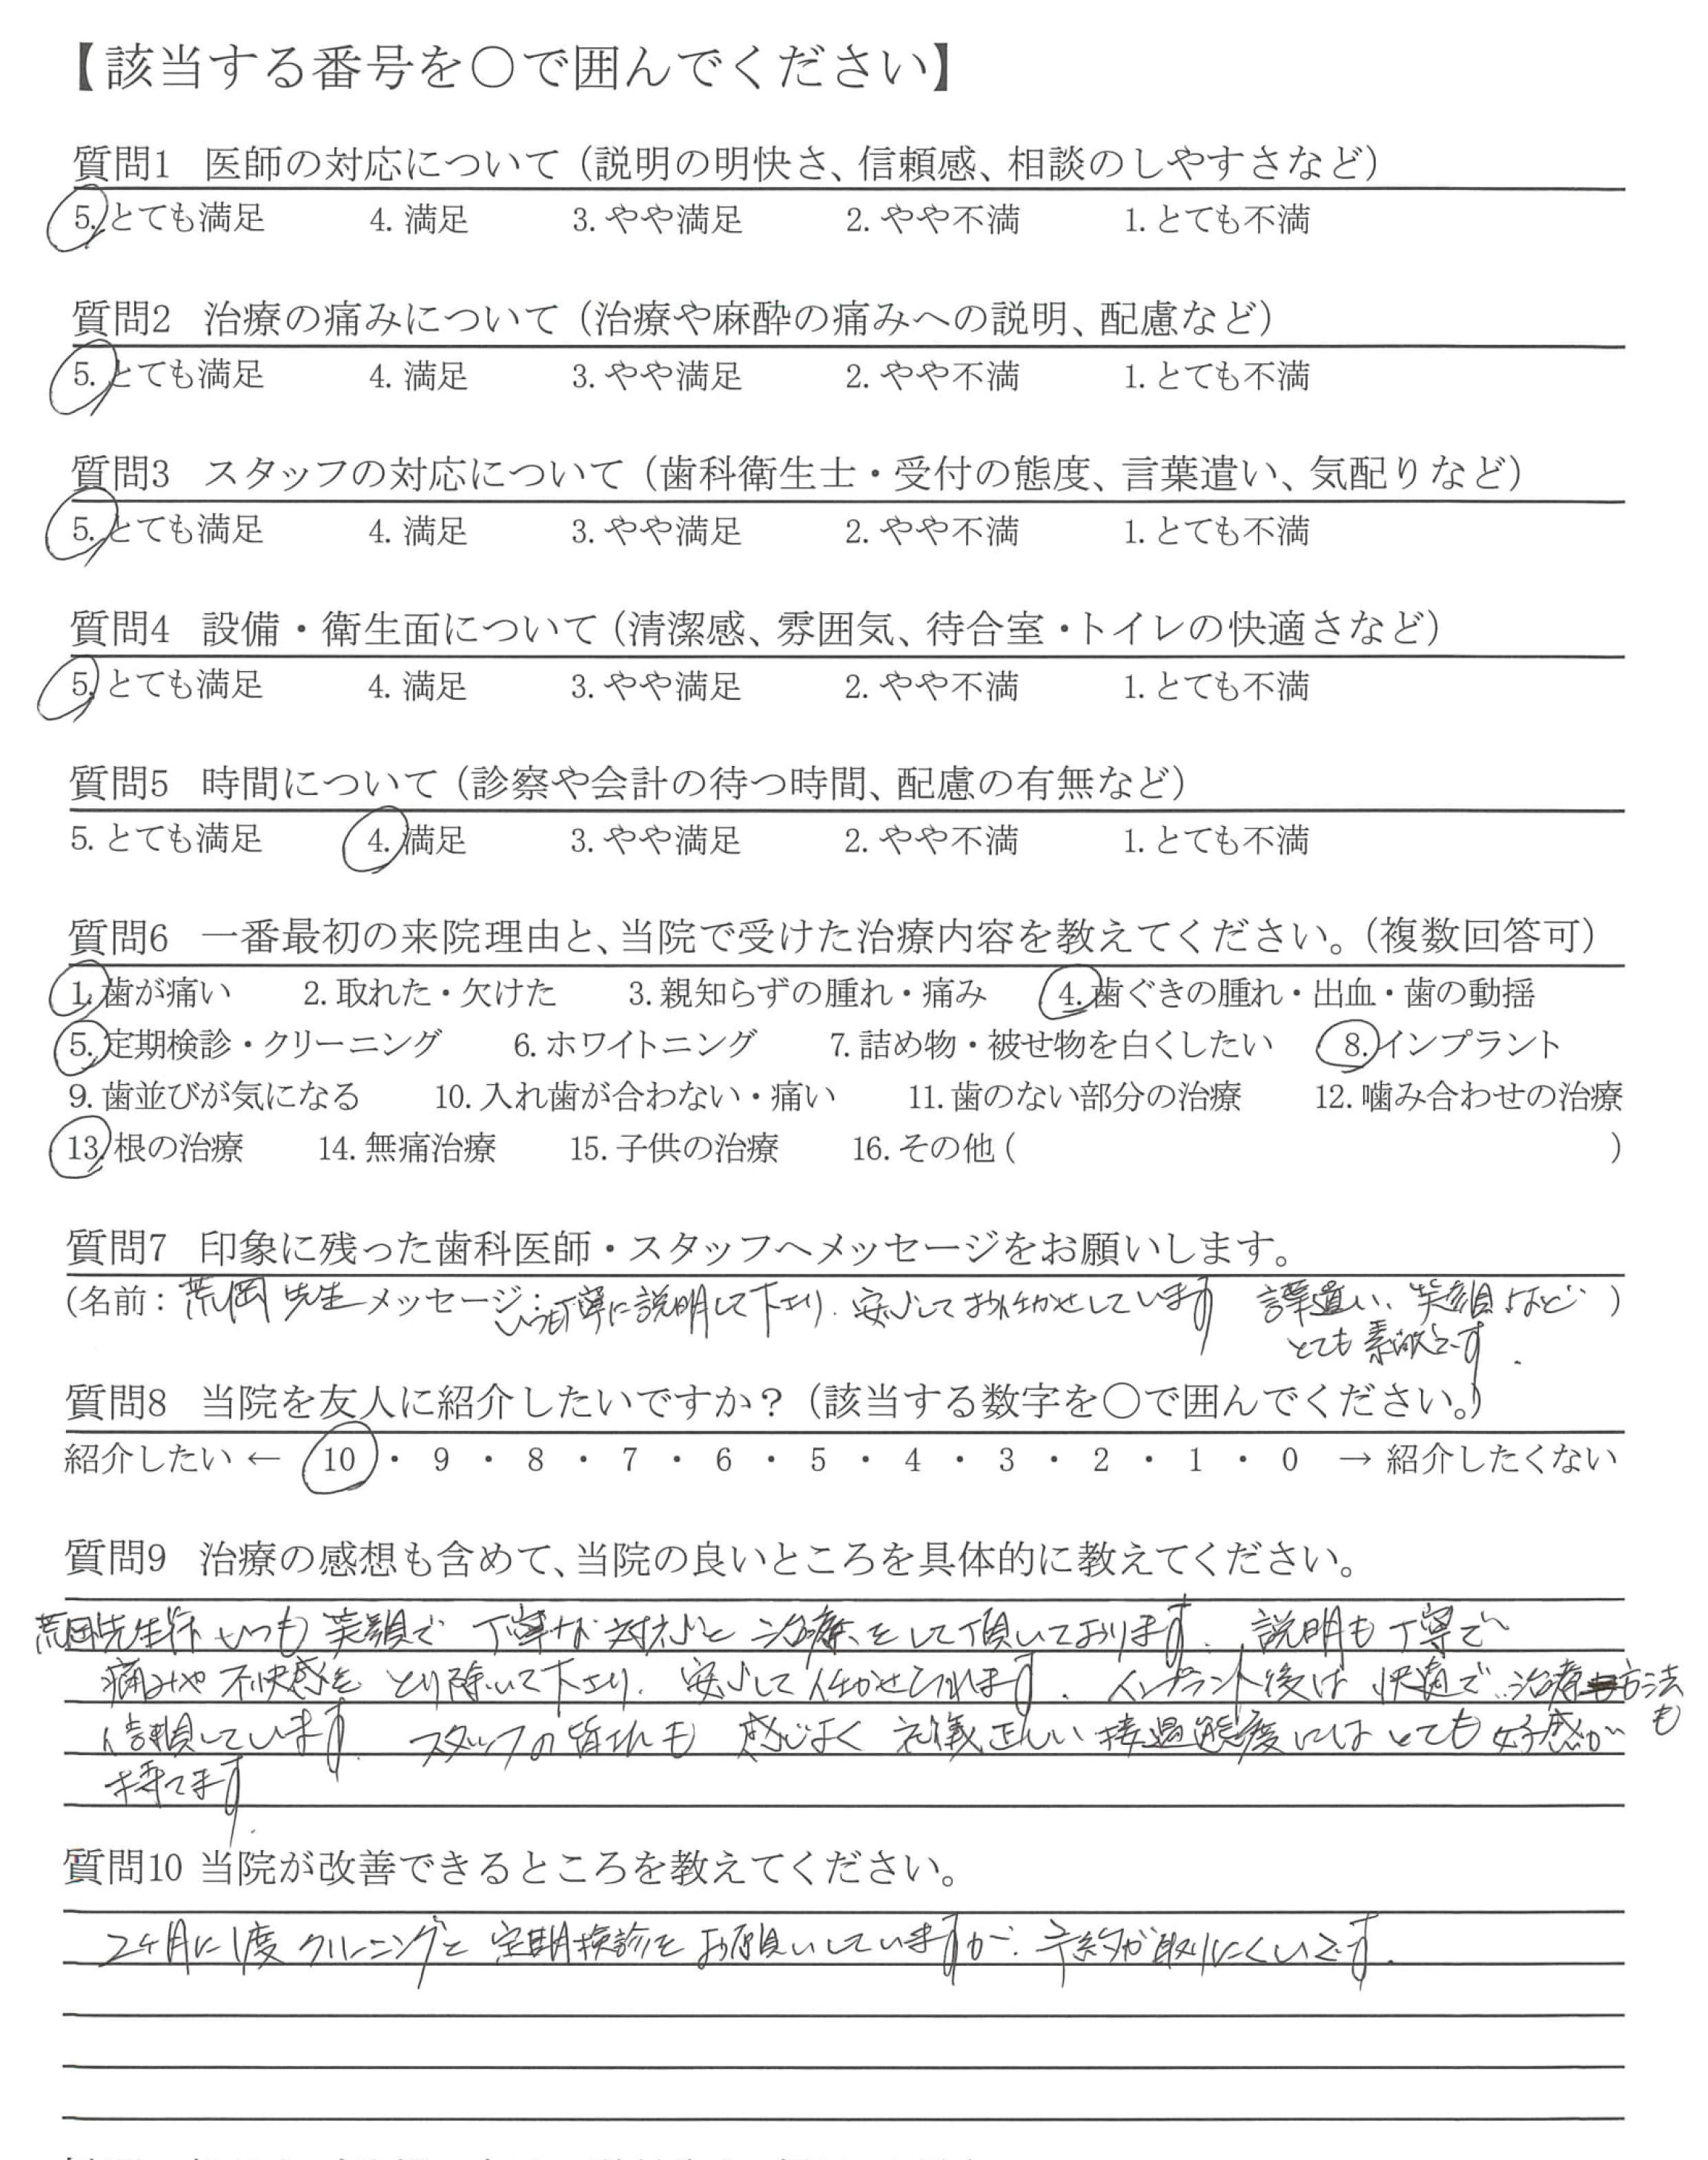 【該当する番号を〇で囲んでください】
質問1 医師の対応について（説明の明快さ、信頼感、相談のしやすさなど）
5.とても満足 4.満足 3.やや満足 2.やや不満 1.とても不満
質問2 治療の痛みについて（治療や麻酔の痛みへの説明、配慮など）
5.とても満足 4.満足 3.やや満足 2.やや不満 1.とても不満
質問3 スタッフの対応について（歯科衛生士・受付の態度、言葉遣い、気配りなど）
5.とても満足 4.満足 3.やや満足 2.やや不満 1.とても不満
質問4 設備・衛生面について（清潔感、雰囲気、待合室・トイレの快適さなど）
5.とても満足 4.満足 3.やや満足 2.やや不満 1.とても不満
質問5 時間について（診察や会計の待つ時間、配慮の有無など）
5.とても満足 4.満足 3.やや満足 2.やや不満 1.とても不満
質問6 一番最初の来院理由と、当院で受けた治療内容を教えてください。（複数回答可）
1.歯が痛い 2.取れた・欠けた 3.親知らずの腫れ・痛み 4.歯ぐきの腫れ・出血・歯の動揺
5.定期検診・クリーニング 6.ホワイトニング 7.詰め物・被せ物を白くしたい 8.インプラント
9.歯並びが気になる 10.入れ歯が合わない・痛い 11.歯のない部分の治療 12.噛み合わせの治療
13.根の治療 14.無痛治療 15.子供の治療 16.その他（ ）
質問7 印象に残った歯科医師・スタッフへメッセージをお願いします。
（名前：荒岡 先生 メッセージ：いつも丁寧に説明して下さり、安心してお任せしています 言葉遣い、笑顔など ）
とても素敵です.
質問8 当院を友人に紹介したいですか？（該当する数字を〇で囲んでください。）
紹介したい ← 10・9・8・7・6・5・4・3・2・1・0 → 紹介したくない
質問9 治療の感想も含めて、当院の良いところを具体的に教えてください。
荒岡先生は いつも 笑顔で 丁寧な 対応と 治療をして頂いております. 説明も丁寧で
痛みや不快感を とり除いて下さり、安心して任かせられます. インプラント後は 快適で、治療方法も
信頼しています. スタッフの皆さんも 感じよく 礼儀正しい接遇態度には とても好感が
持てます.
質問10 当院が改善できるところを教えてください。
2ヶ月に1度 クリーニングと 定期検診を お願いしていますが、予約が取りにくいです.